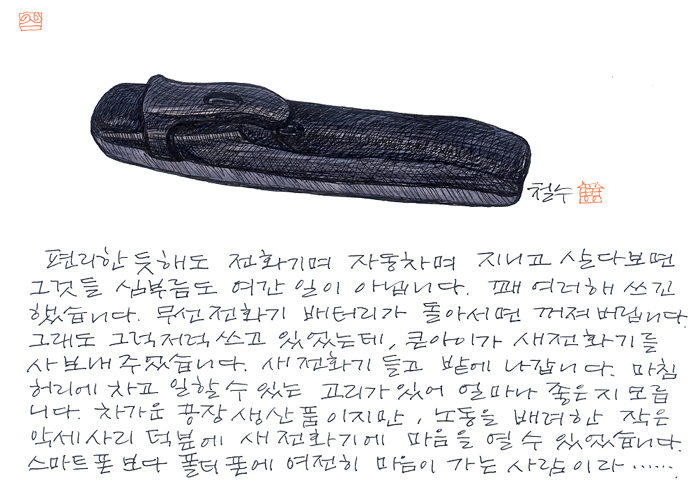 철수
편리한 듯해도 전화기며 자동차며 지니고 살다보면
그것들 심부름도 여간 일이 아닙니다. 꽤 여러해 쓰긴
했습니다. 무선전화기 배터리가 돌아서면 꺼져버립니다.
그래도 그럭저럭 쓰고 있었는데, 큰아이가 새전화기를
사보내주었습니다. 새전화기 들고 밭에 나갑니다. 마침
허리에 차고 일할 수 있는 고리가 있어 얼마나 좋은지 모릅
니다. 차가운 공장 생산품이지만, 노동을 배려한 작은
악세사리 덕분에 새전화기에 마음을 열 수 있었습니다.
스마트폰보다 폴더폰에 여전히 마음이 가는 사람이라……